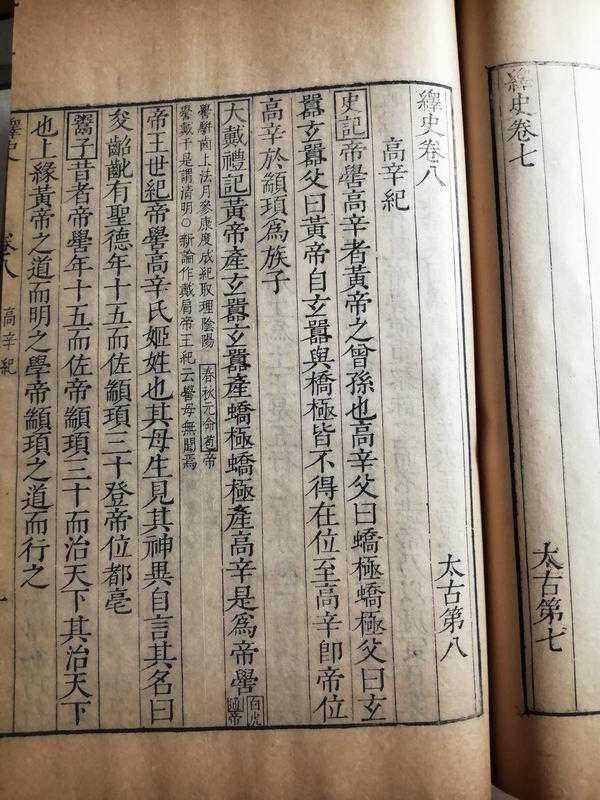 繹史卷七　太古第七
繹史卷八　太古第八
高辛紀
史記帝嚳高辛者黃帝之曾孫也高辛父曰蟜極蟜極父曰玄
囂玄囂父曰黃帝自玄囂與橋極皆不得在位至高辛卽帝位
高辛於顓頊爲族子
大戴禮記黃帝產玄囂玄囂產蟜極蟜極產高辛是爲帝嚳
白虎
通帝
嚳駢齒上法月參康度成紀取理陰陽　春秋元命苞帝
嚳戴干是謂清明○新論作戴肩帝王紀云嚳母無聞焉
帝王世紀帝嚳高辛氏姬姓也其母生見其神異自言其名曰
夋齠齔有聖德年十五而佐顓頊三十登帝位都亳
鬻子昔者帝嚳年十五而佐帝顓頊三十而治天下其治天下
也上緣黃帝之道而明之學帝顓頊之道而行之
繹史　卷八　高辛紀　一